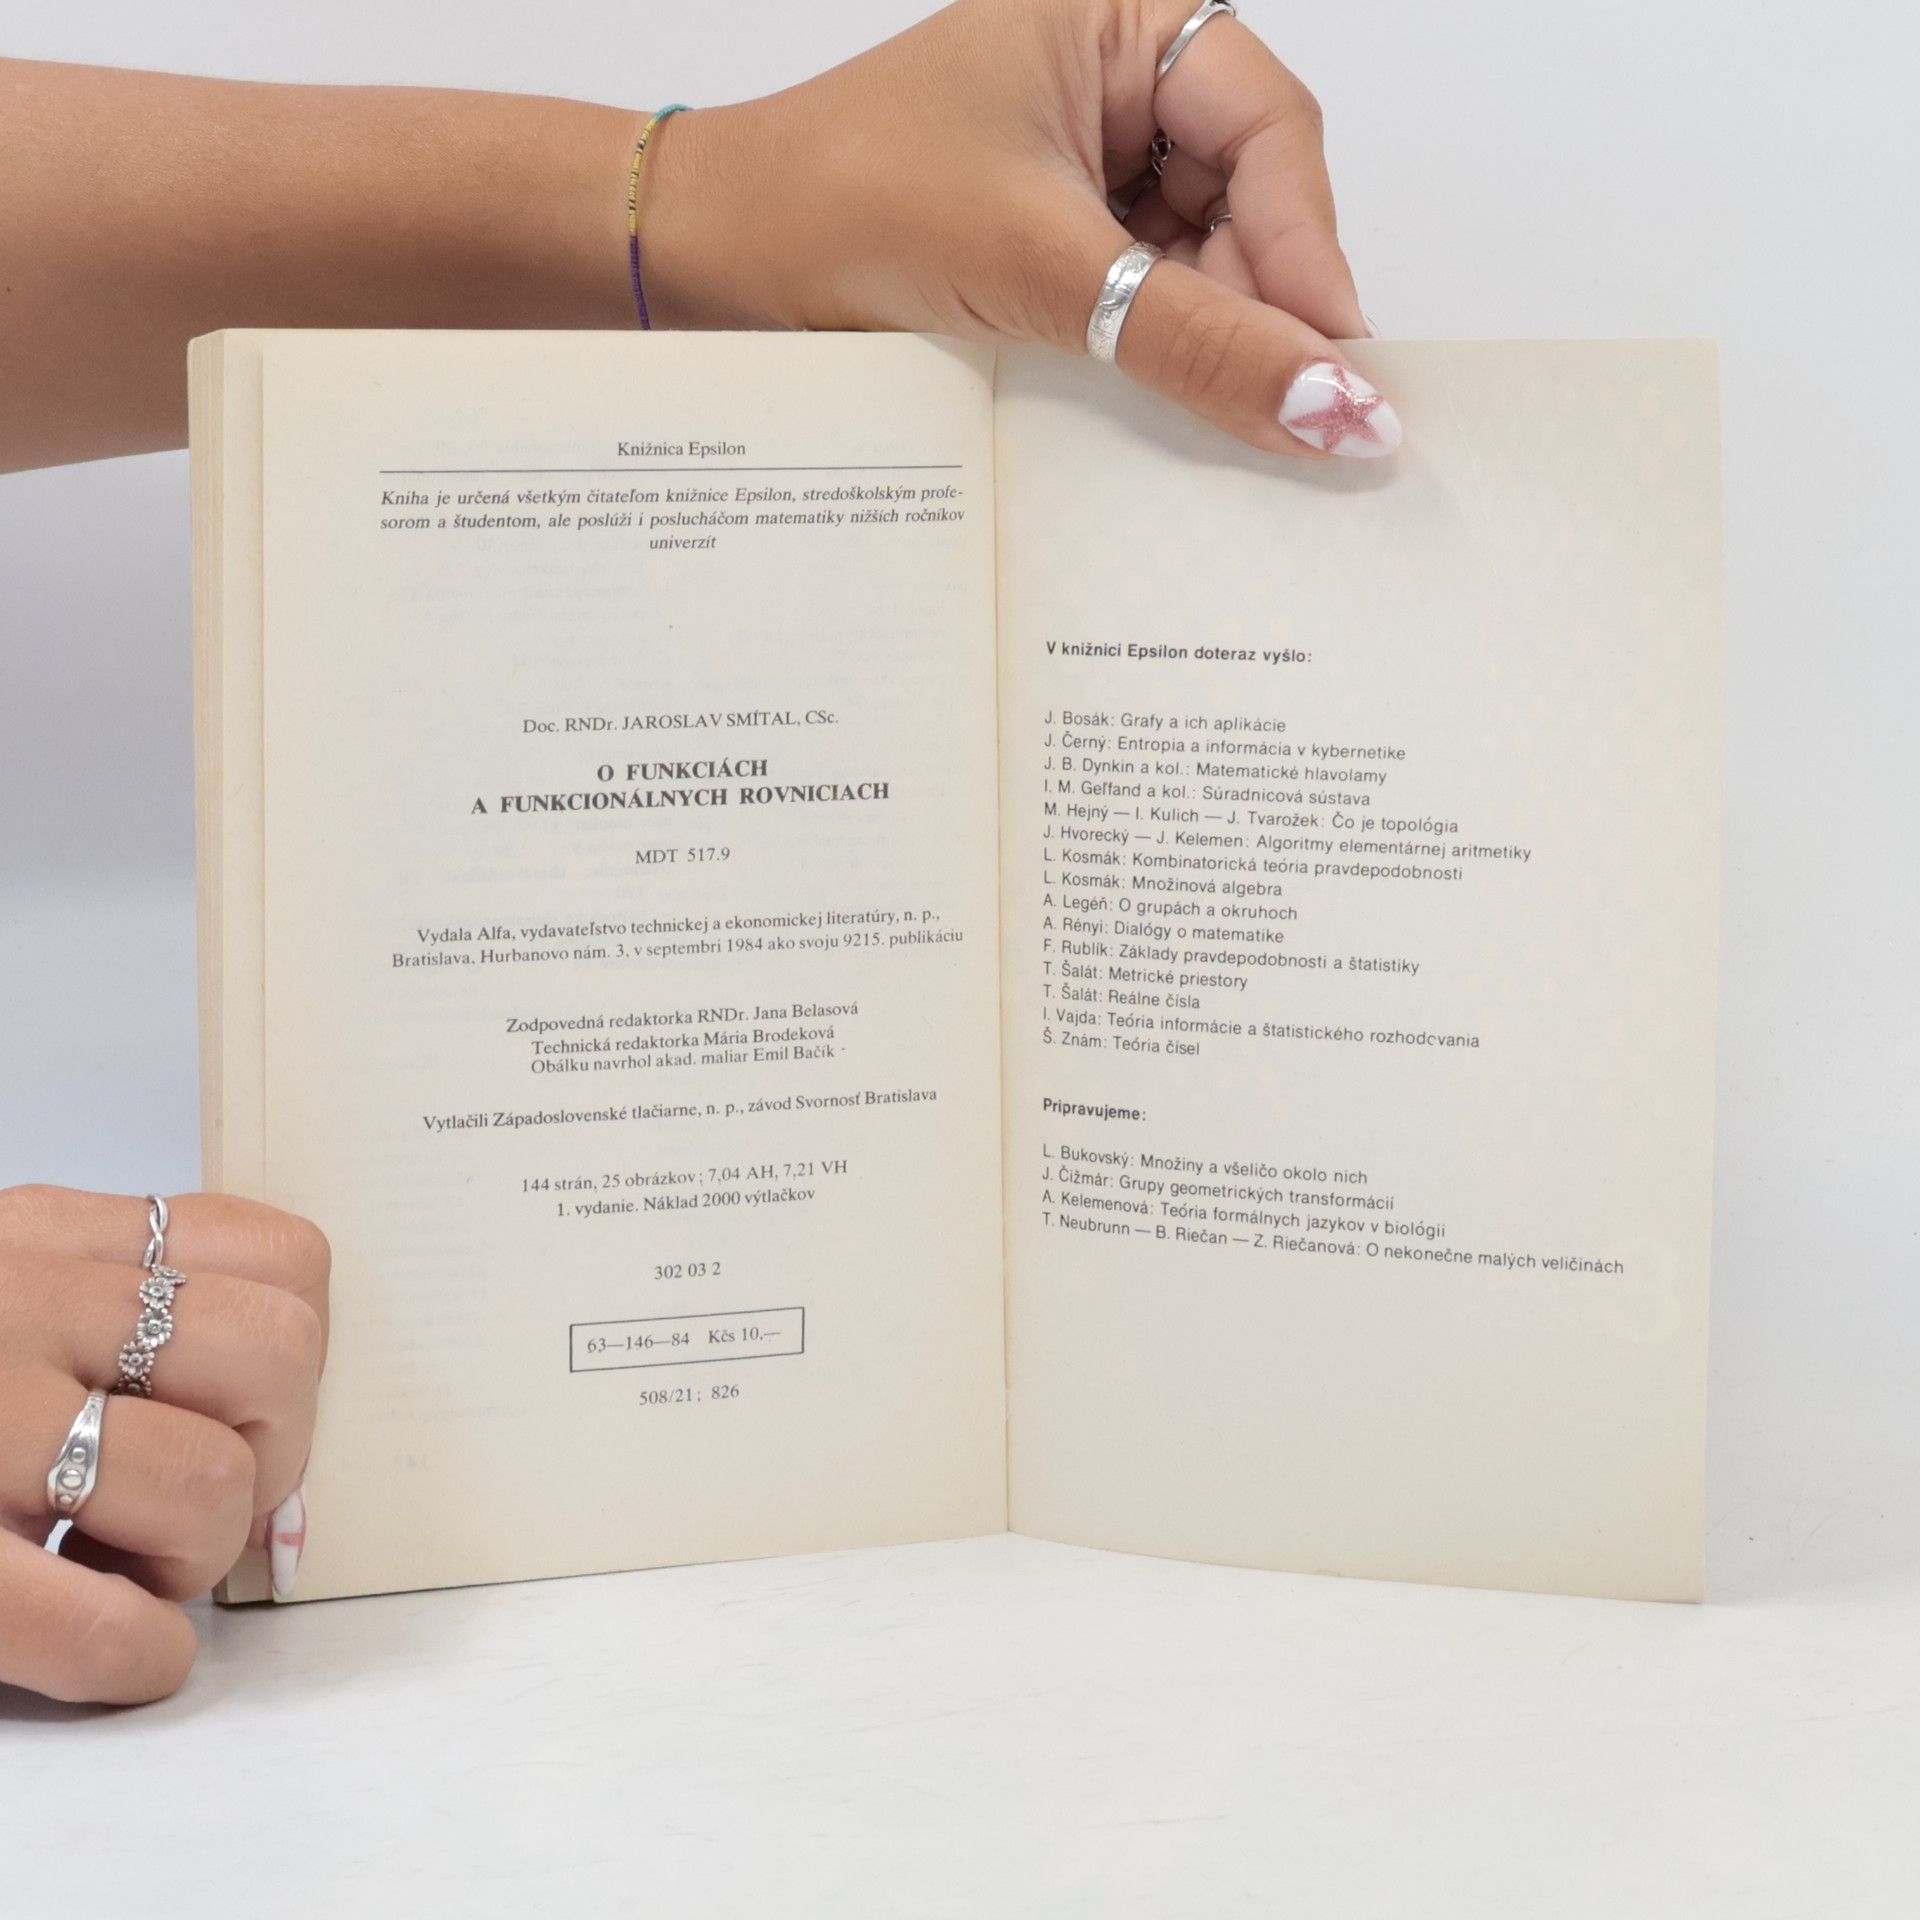 Knižnica Epsilon
Kniha je určená všetkým čitateľom knižnice Epsilon, stredoškolským profe-
sorom a študentom, ale poslúži i poslucháčom matematiky nižších ročníkov
univerzít
Doc. RNDr. JAROSLAV SMÍTAL, CSc.
O FUNKCIÁCH
A FUNKCIONÁLNYCH ROVNICIACH
MDT 517.9
Vydala Alfa, vydavateľstvo technickej a ekonomickej literatúry, n. p.,
Bratislava, Hurbanovo nám. 3, v septembri 1984 ako svoju 9215. publikáciu
Zodpovedná redaktorka RNDr. Jana Belasová
Technická redaktorka Mária Brodeková
Obálku navrhol akad. maliar Emil Bačík
Vytlačili Západoslovenské tlačiarne, n. p., závod Svornosť Bratislava
144 strán, 25 obrázkov; 7,04 AH, 7,21 VH
1. vydanie. Náklad 2000 výtlačkov
302 03 2
63—146—84 Kčs 10,—
508/21; 826
V knižnici Epsilon doteraz vyšlo:
J. Bosák: Grafy a ich aplikácie
J. Černý: Entropia a informácia v kybernetike
J. B. Dynkin a kol.: Matematické hlavolamy
I. M. Geľfand a kol.: Súradnicová sústava
M. Hejný — I. Kulich — J. Tvarožek: Čo je topológia
J. Hvorecký — J. Kelemen: Algoritmy elementárnej aritmetiky
L. Kosmák: Kombinatorická teória pravdepodobnosti
L. Kosmák: Množinová algebra
A. Legéň: O grupách a okruhoch
A. Rényi: Dialógy o matematike
F. Rublík: Základy pravdepodobnosti a štatistiky
T. Šalát: Metrické priestory
T. Šalát: Reálne čísla
I. Vajda: Teória informácie a štatistického rozhodovania
Š. Znám: Teória čísel
Pripravujeme:
L. Bukovský: Množiny a všeličo okolo nich
J. Čižmár: Grupy geometrických transformácií
A. Kelemenová: Teória formálnych jazykov v biológii
T. Neubrunn — B. Riečan — Z. Riečanová: O nekonečne malých veličinách